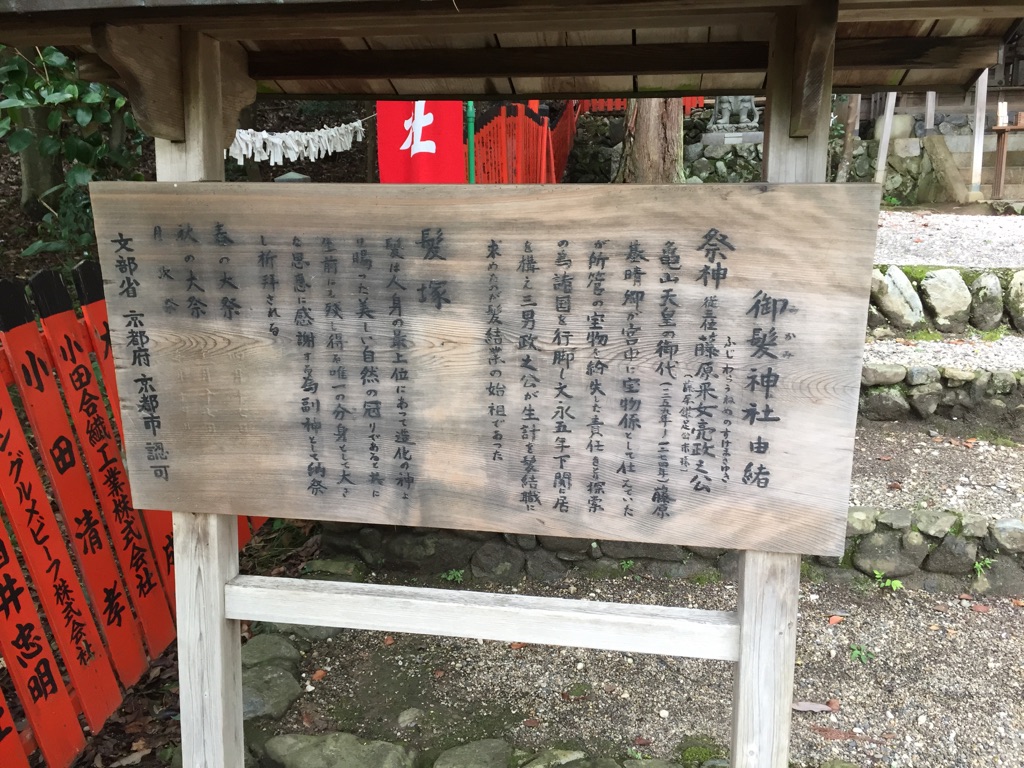 御髪神社 由緒
みかみ
祭神 従五位 藤原采女亮政之公
ふじわらうねめのすけまさゆき
(藤原鎌足公末孫)
亀山天皇の御代(一二五九年〜一二七四年)藤原
基晴卿が宮中に宝物係として仕えていた
が所管の宝物を紛失した責任
の為諸国を行脚し文永五年下関に居
を構え三男政之公が生計を髪結職に
求めたのが髪結業の始祖であった
髪塚
髪は人身の最上位にあって造化の神より
賜った美しい自然の冠りであると共に
生前にも残し得る唯一の分身として大き
な恩恵に感謝する為副神として納祭
し祈拝される
春の大祭
秋の大祭
月次祭
文部省 京都府 京都市 認可
社
小田合繊工業株式会社
小田清孝
グルメピープ株式会社
井忠明